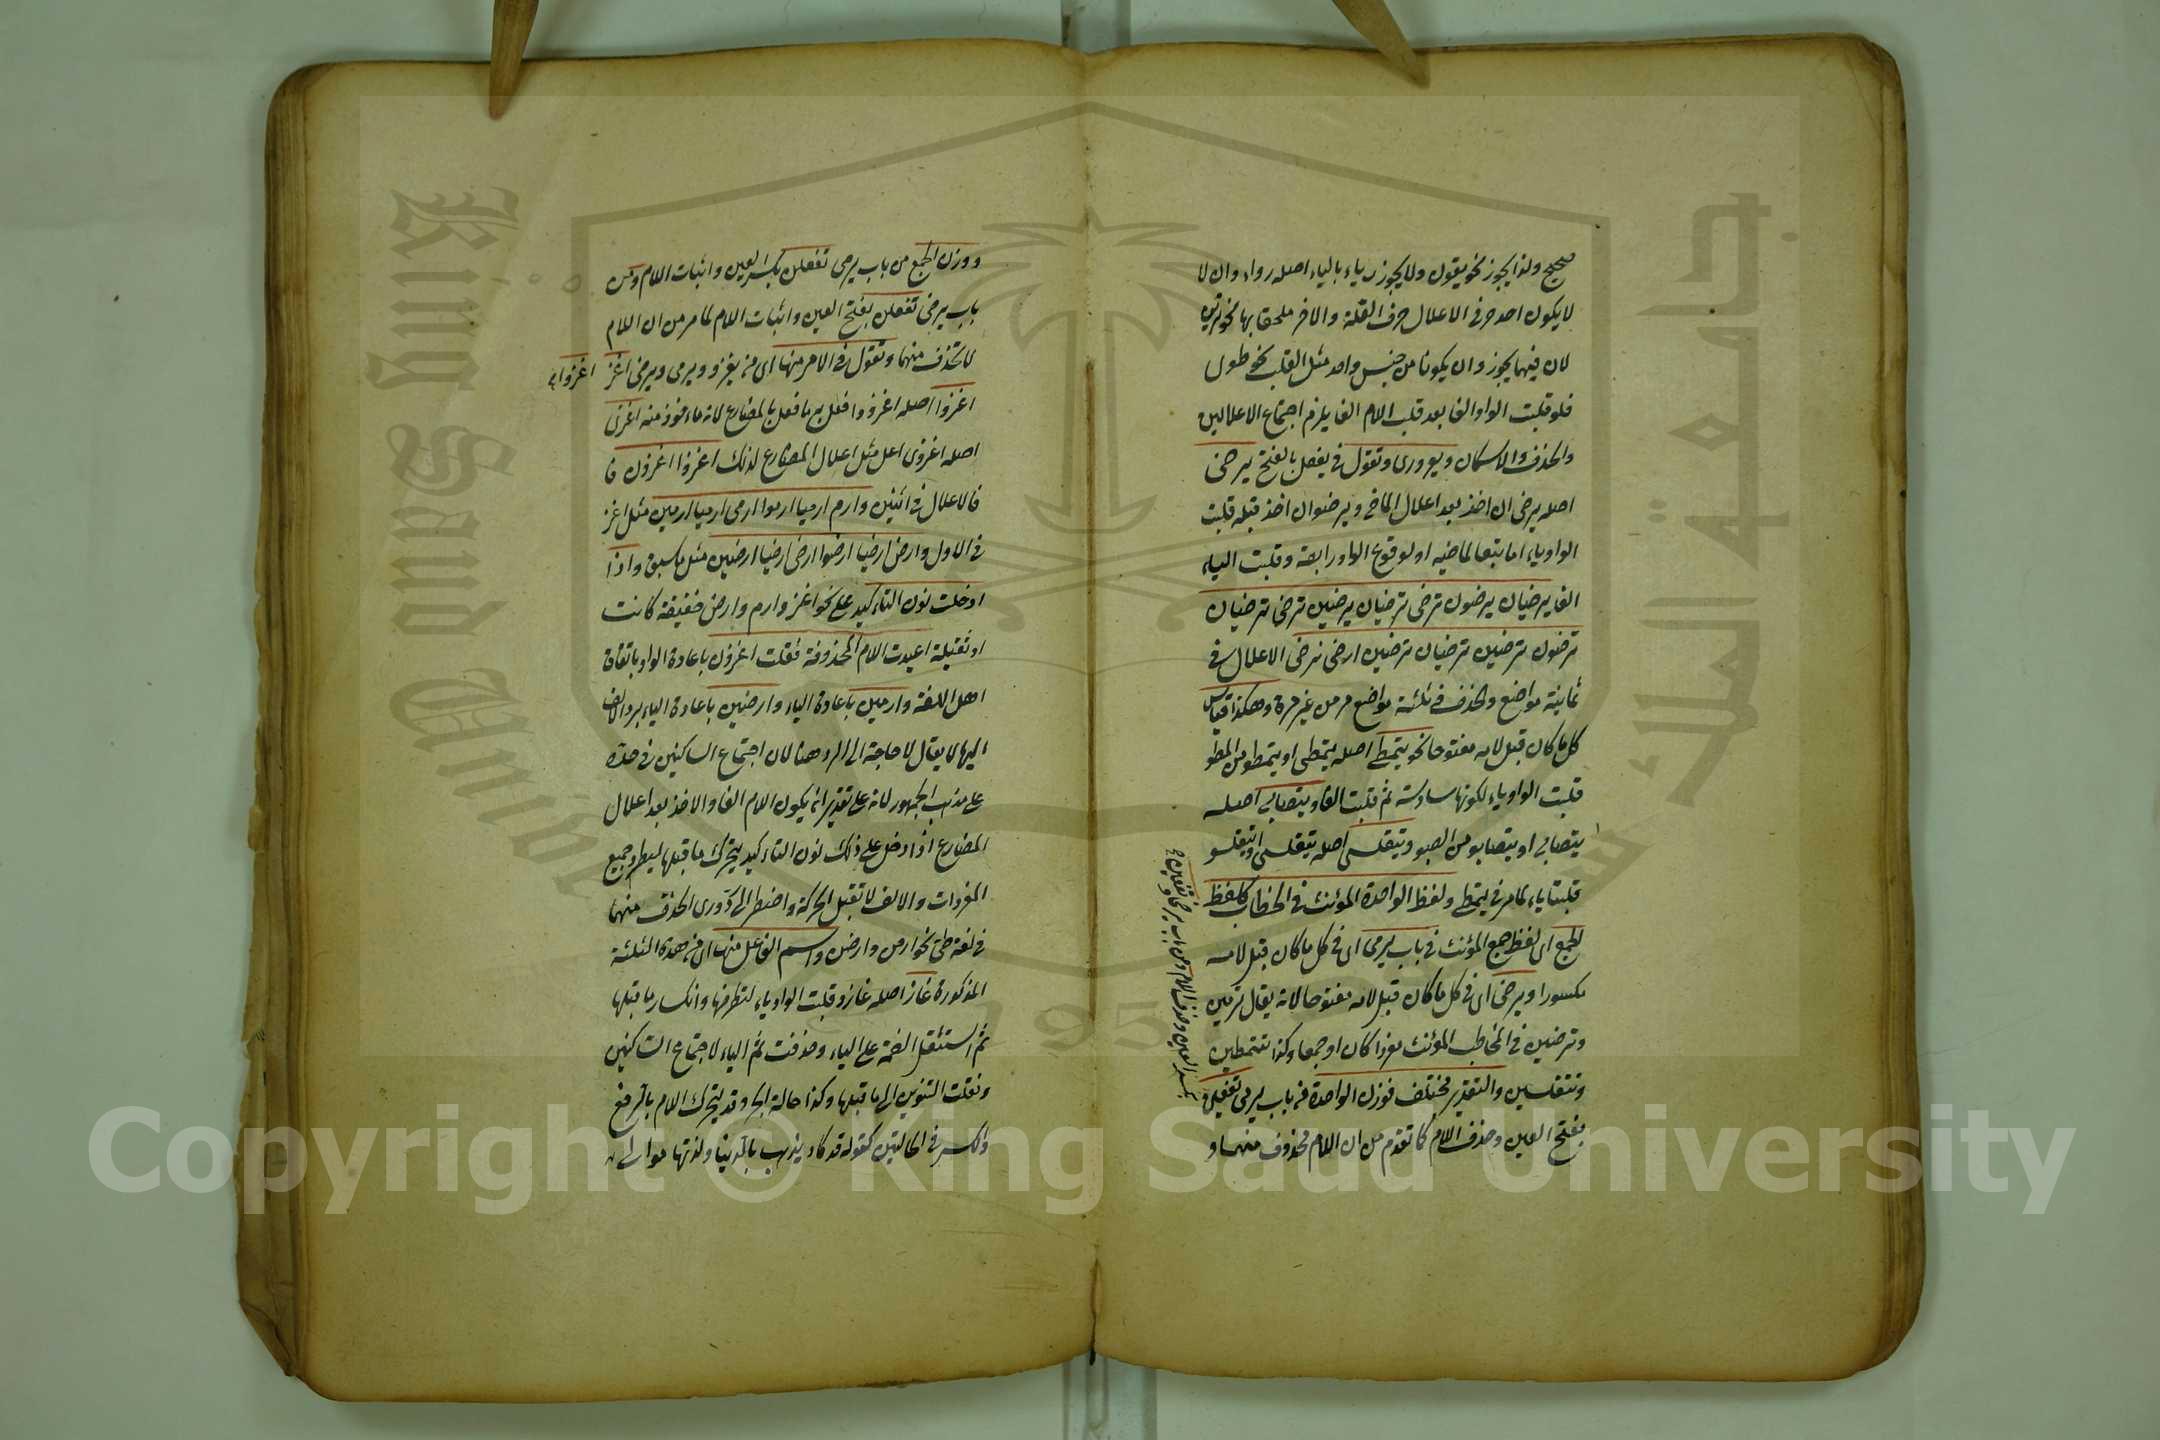 صحيح ولذا يجوز نحو يقول ولا يجوز رياء بالياء اصله رواء وان لا
لا يكون احد حرفي الاعلال حرف العلة والاخر ملحقا بها نحو
لان فيهما يجوز وان يكونا من جنس واحد مثل القلب نحو طول
فلو قلبت الواو الفا بعد قلب اللام الفا يلزم اجتماع الاعلالين
والحذف والاسكان ويعورى وتقول في يفعل بالفتح يرضى
اصله يرضى ان اخذ بعد اعلال الماضى ويرضوان اخذ قبله قلبت
الواو ياء اما تبعا لماضيه او لوقوع الواو رابعة وقلبت الياء
الفا يرضيان يرضون ترضى ترضيان يرضين ترضى ترضيان
ترضون ترضين ترضيان ترضين ارضى نرضى الاعلال في
ثمانية مواضع والحذف في ثلثة مواضع مر من غير مرة وهكذا قياس
كل ما كان قبل لامه مفتوحا نحو يتمطى اصله يتمطى او يتمطو من المطو
قلبت الواو ياء لكونها سادسة ثم قلبت الفا ويتصابى اصله
يتصابى او يتصابو من الصبو ويتقلسى اصله يتقلسى او يتقلسو
قلبتا ياء لما مر في يتمطى ولفظ الواحدة المؤنث في الخطاب كلفظ
الجمع اى لفظ جمع المؤنث في باب يرمى اى في كل ما كان قبل لامه
مكسورا ويرضى اى في كل ما كان قبل لامه مفتوحا لانه يقال ترمين
وترضين في المخاطب المؤنث مفردا كان او جمعا وكذا تتمطين
وتتقلسين والتقدير مختلف فوزن الواحدة من باب يرمى تفعين
بفتح العين وحذف اللام كما تقدم من ان اللام محذوف منهما و
بكسر العين وحذف اللام ومن باب يرضى تفعين
ووزن الجمع من باب يرمى تفعلن بكسر العين واثبات اللام ومن
باب يرضى تفعلن بفتح العين واثبات اللام لما مر من ان اللام
لا تحذف منهما وتقول في الامر منها اى من يغزو ويرمى ويرضى اغز
اغزوا
اغزوا اصله اغزووا فعل به ما فعل بالمضارع لانه ماخوذ منه اغزى
اصله اغزوى اعل مثل اعلال المضارع لذلك اغزوا اغزون فا
فالاعلال في اثنين وارم ارميا ارموا ارمى ارميا ارمين مثل اغز
في الاول وارض ارضيا ارضوا ارضى ارضيا ارضين مثل ما سبق واذا
ادخلت نون التاكيد على نحو اغز وارم وارض خفيفة كانت
او ثقيلة اعيدت اللام المحذوفة فقلت اغزون باعادة الواو باتفاق
اهل اللغة وارمين باعادة الياء وارضين باعادة الياء برد الالف
اليها لا يقال لا حاجة الى الرد هنا لان اجتماع الساكنين في حده
على مذهب الجمهور لانه على تقدير انه يكون اللام الفا والاخذ بعد اعلال
المضارع اذا دخل على ذلك نون التاكيد يتحرك ما قبلها ليطرد جميع
المفردات والالف لا تقبل الحركة واضطر الى الحذف منهما
في لغة طى نحو ارمن وارضن واسم الفاعل منها اى من هذه الثلثة
المذكورة غاز اصله غازو قلبت الواو ياء لتطرفها وانكسار ما قبلها
ثم استثقل الضمة على الياء وحذفت ثم الياء لاجتماع الساكنين
ونقلت التنوين الى ما قبلها وكذا حالة الجر وقد يتحرك اللام بالرفع
والكسر في الحالتين كقوله قد كاد يذهب بالدنيا ولذتها موالى
King Saud University
جامعة الملك سعود
1957
Copyright © King Saud University